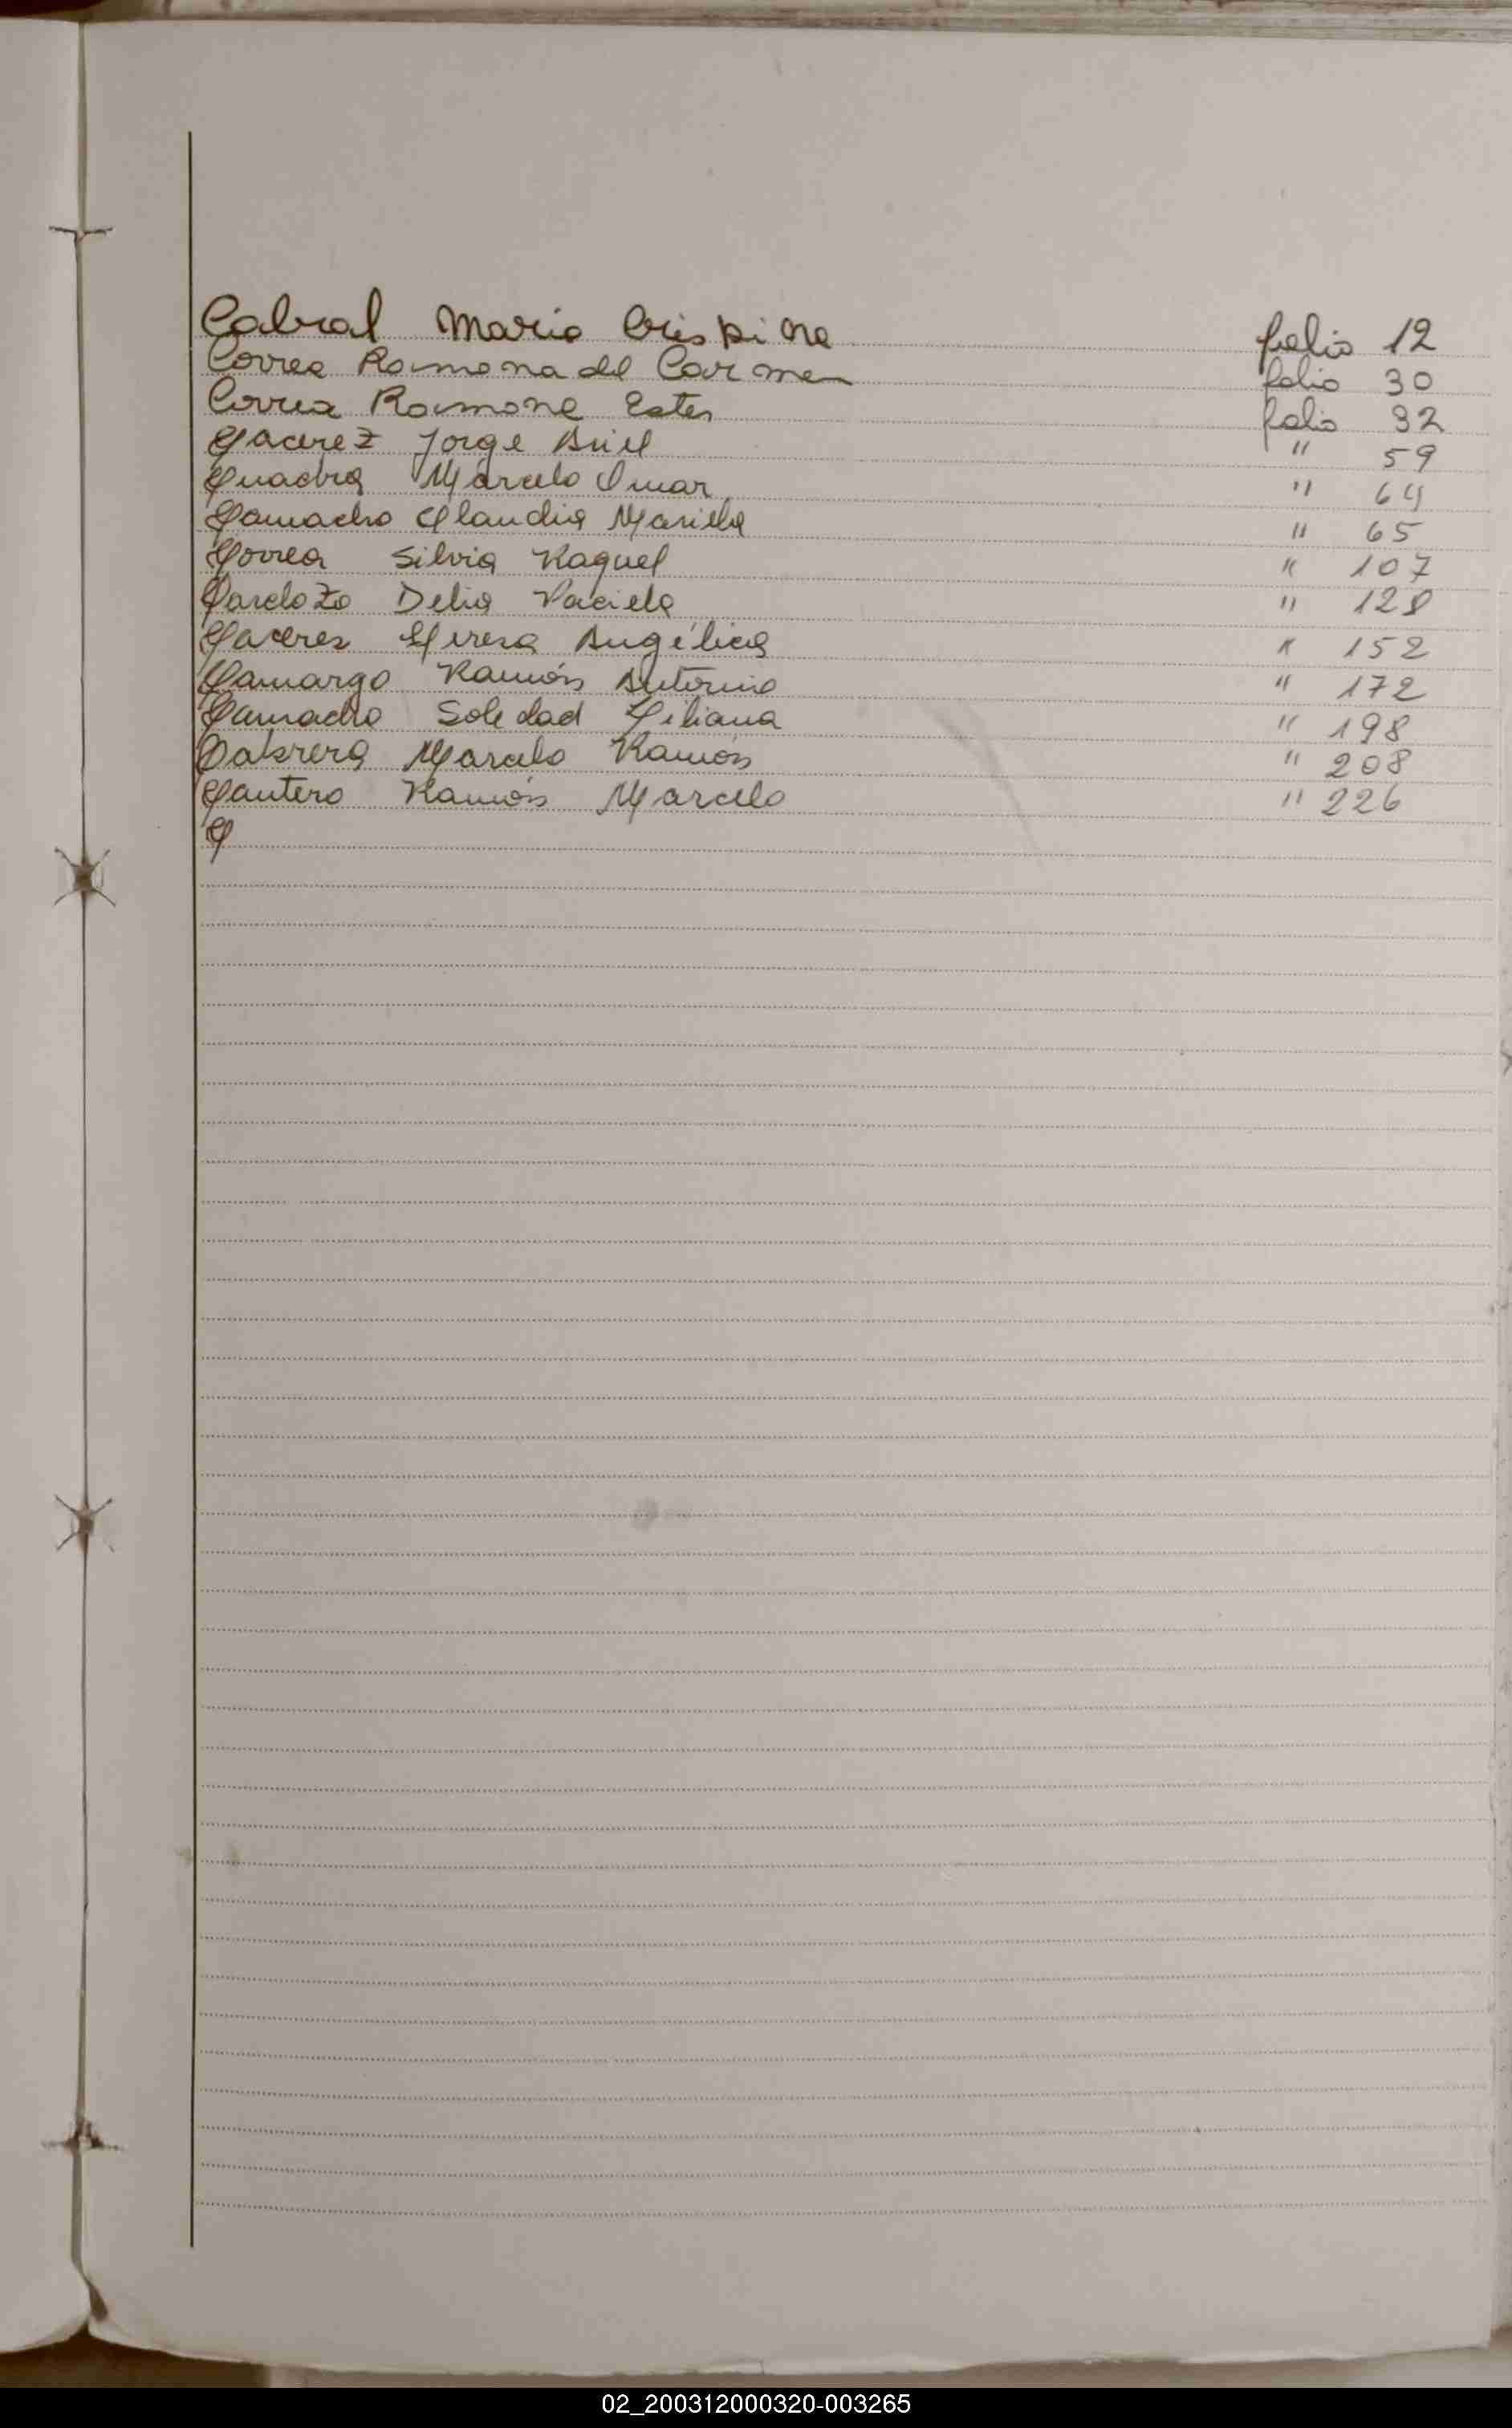 Cabral Maria Crispina folio 12
Correa Ramona del Carmen folio 30
Correa Ramona Ester folio 32
Cacerez Jorge Ariel " 59
Cuadra Marcelo Omar " 64
Camacho Claudia Mariela " 65
Correa Silvia Raquel " 107
Cardozo Delia " 128
Caceres Teresa Angélica " 152
Camargo Ramón Antonio " 172
Camacho Soledad Liliana " 198
Cabrera Marcelo Ramón " 208
Cantero Ramón Marcelo " 226
C
02_200312000320-003265